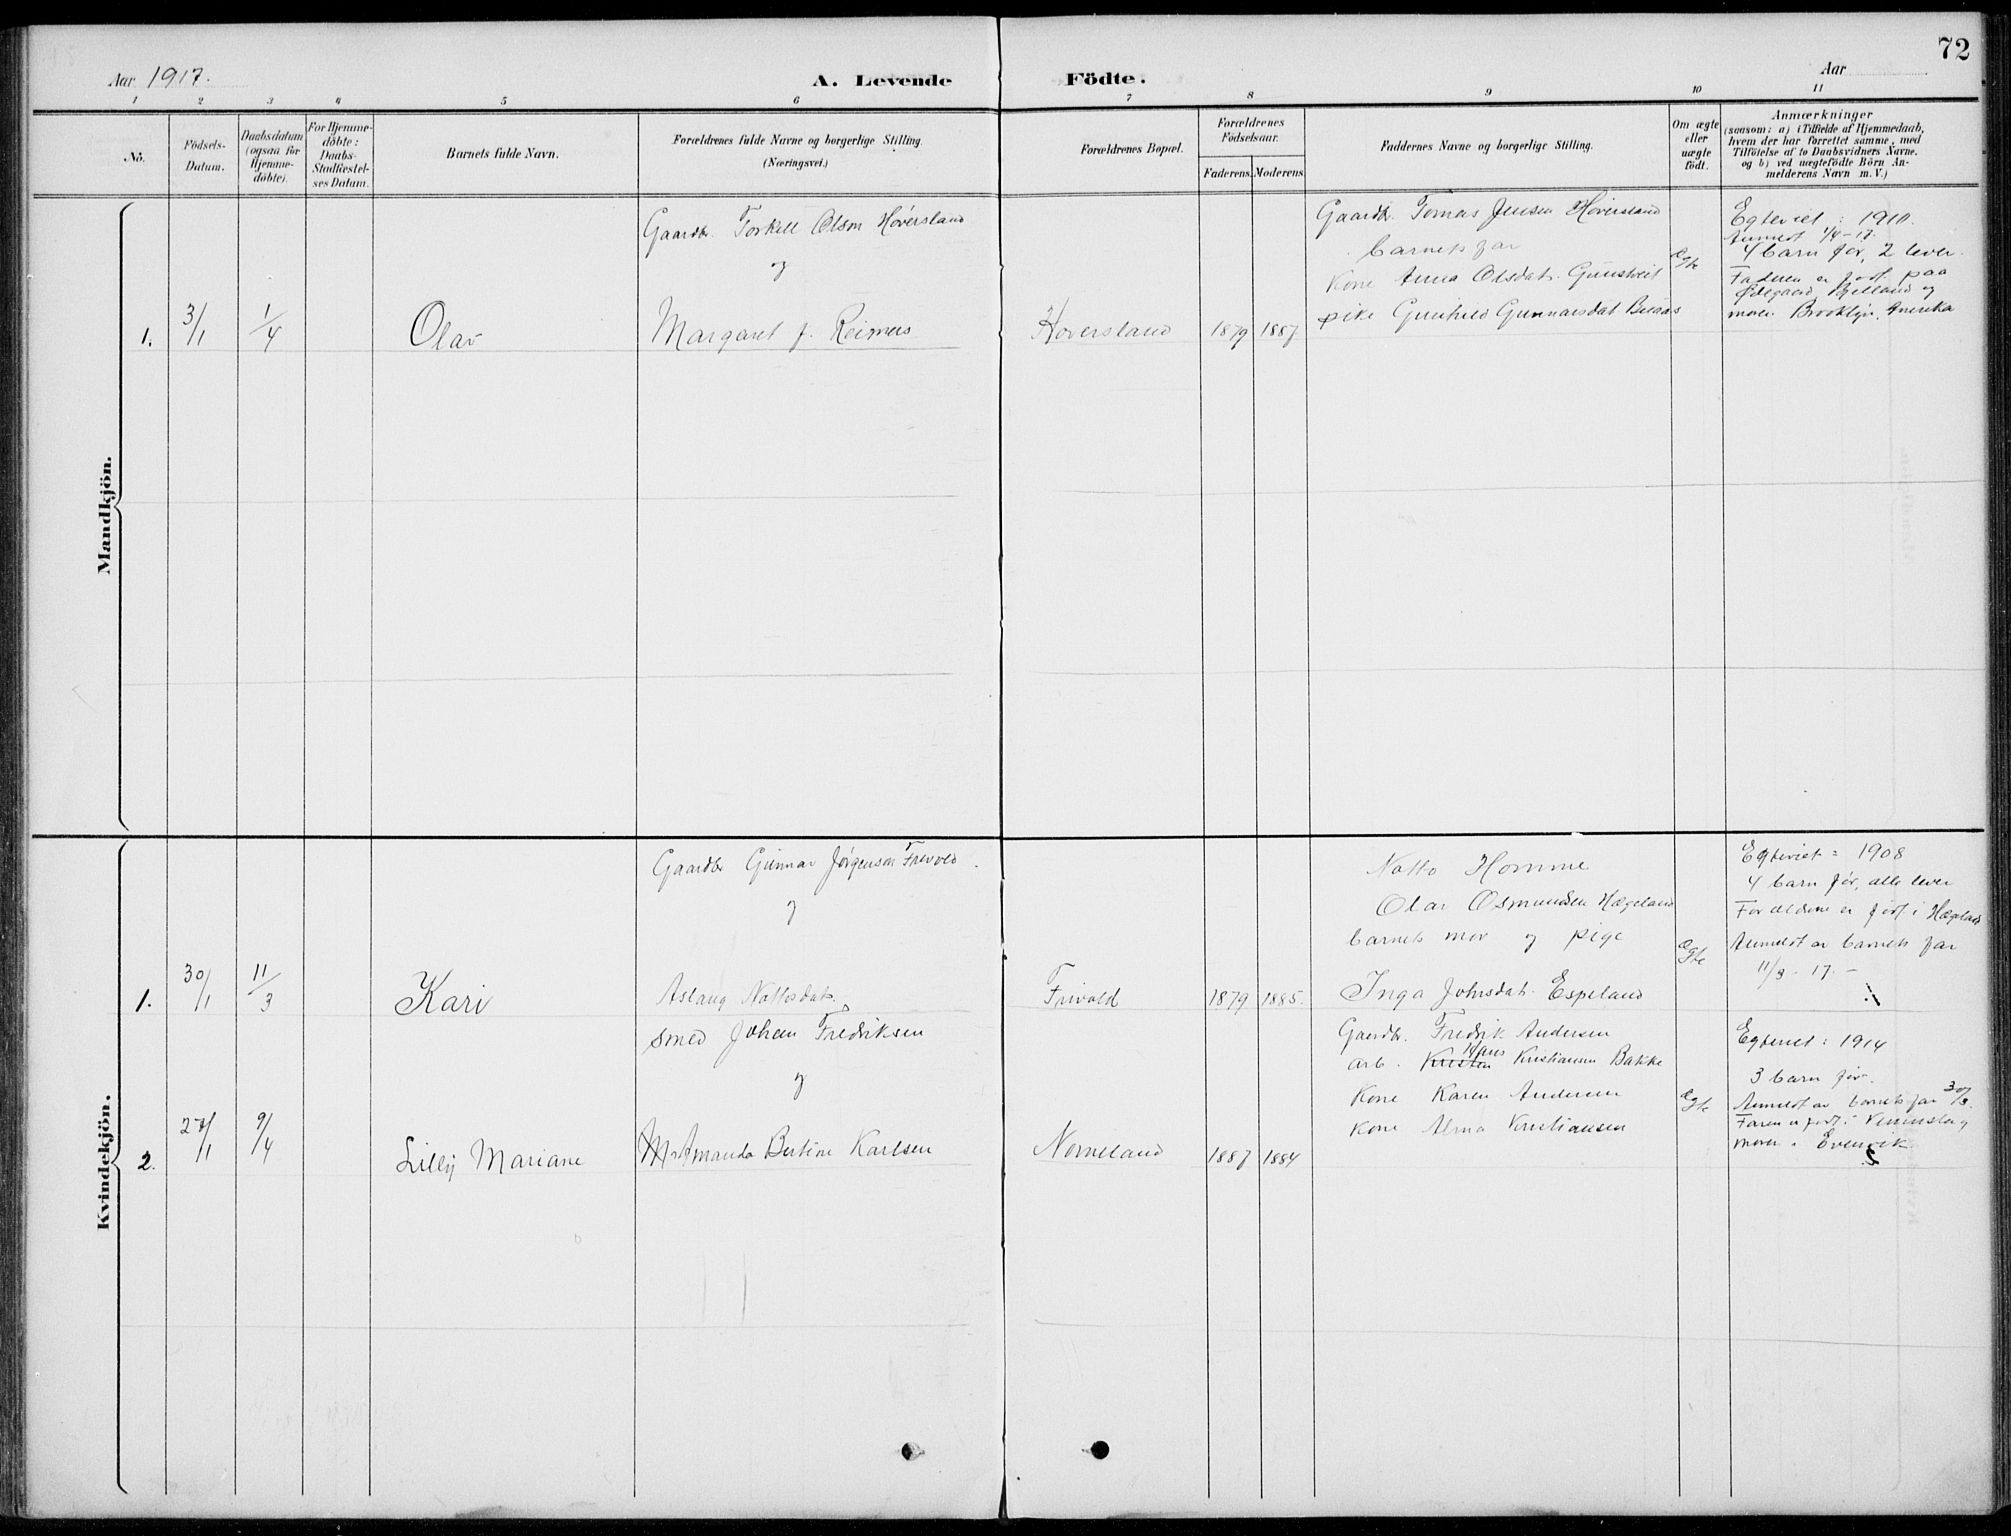 72
Aar 1917.
A. Levende Födte.
Aar
1 2 3 4 5 6 7 8 9 10 11
No.
Födsels-Datum.
Daabsdatum (ogsaa for Hjemme-döbte).
For Hjemme-döbte: Daabs-Stadfæstel-ses Datum.
Barnets fulde Navn.
Forældrenes fulde Navne og borgerlige Stilling.
(Næringsvei.)
Forældrenes Bopæl.
Forældrenes Födselsaar.
Faderens. Moderens.
Faddernes Navne og borgerlige Stilling.
Om ægte eller uægte födt.
Anmærkninger
(saasom: a) i Tilfælde af Hjemmedaab,
hvem der har forrettet samme, med
Tilföielse af to Daabsvidners Navne.
og b) ved uægtefödte Börn An-
melderens Navn m. V.)
Mandkjön.
1.
3/1
1/4
Olav
Gaardbr. Torkell Olsen Hóversland
og
Margaret J. Reimers
Hoversland
1879
1887
Gaardbr. Tomas Jensen Hóversland
barnets far
Kone Anna Olsdat. Gunstveit
pike Gunhild Gunnarsdat
Ægte
Egteviet: 1910.
Anmeldt 1/4-17.
4 barn før, 2 lever.
Faderen er født paa
Ødegaard, Bjelland og
moren Brooklyn. Amerika
Kvindekjön.
1.
30/1
11/3
Kari
Gaardbr Gunnar Jørgensen Frivold
og
Aslaug Nattosdat.
Frivold
1879
1885.
Natto Homme
Olav Osmundsen Hægeland
barnets mor og pige
Inga Johnsdat. Espeland
Ægte
Egteviet: 1908
4 barn før, alle lever
Forældrene er født i Hægeland
Anmeldt av barnets far
11/3-17.-
1.
2.
27/1
9/4
Lilly Mariane
smed Johan Fredriksen
og
Amanda Bertine Karlsen
Nomeland
1887
1884
Gaardbr. Fredrik Andersen
Hans
arb. Kristen Kristiansen Bakke
Kone Karen Andersen
Kone Alma Kristiansen
Ægte
Egteviet: 1914
3 barn før.
Anmeldt av barnets far 30/3.
Faren er født i Vennesla og
moren i Evenvik
2.